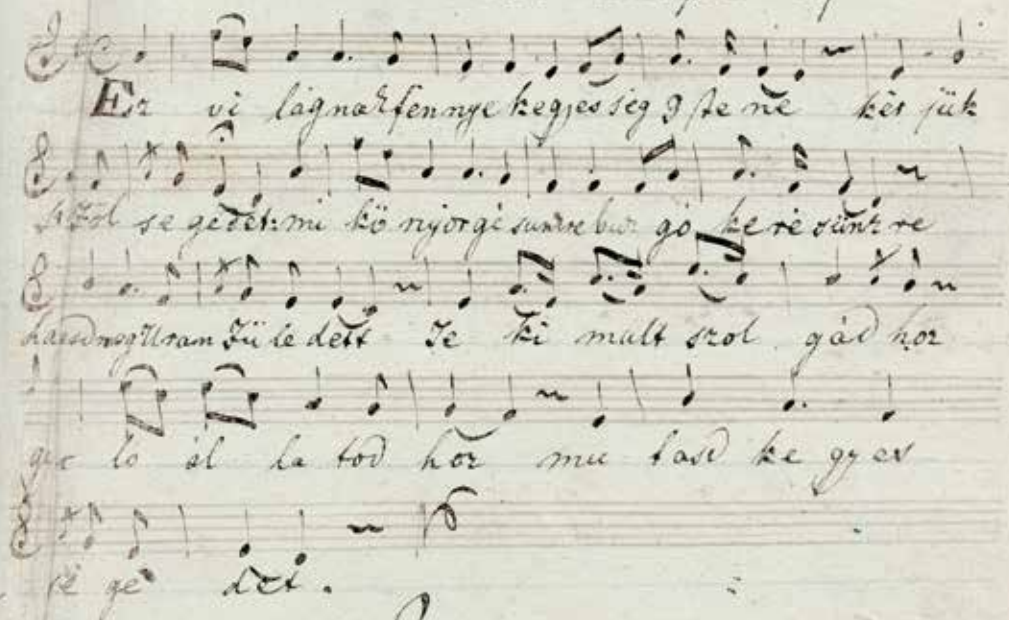 Ez vi lágnak fennye kegjes ség Iste ne kér jük
szol se gedét: mi kö nyörgé sunkre buz gó ke ré sünk re
hajcsd meg Uram Fü le dett Te ki mult szol gád hoz
gya lo ál la tod hoz mu tasd ke gy es
sé gé det.